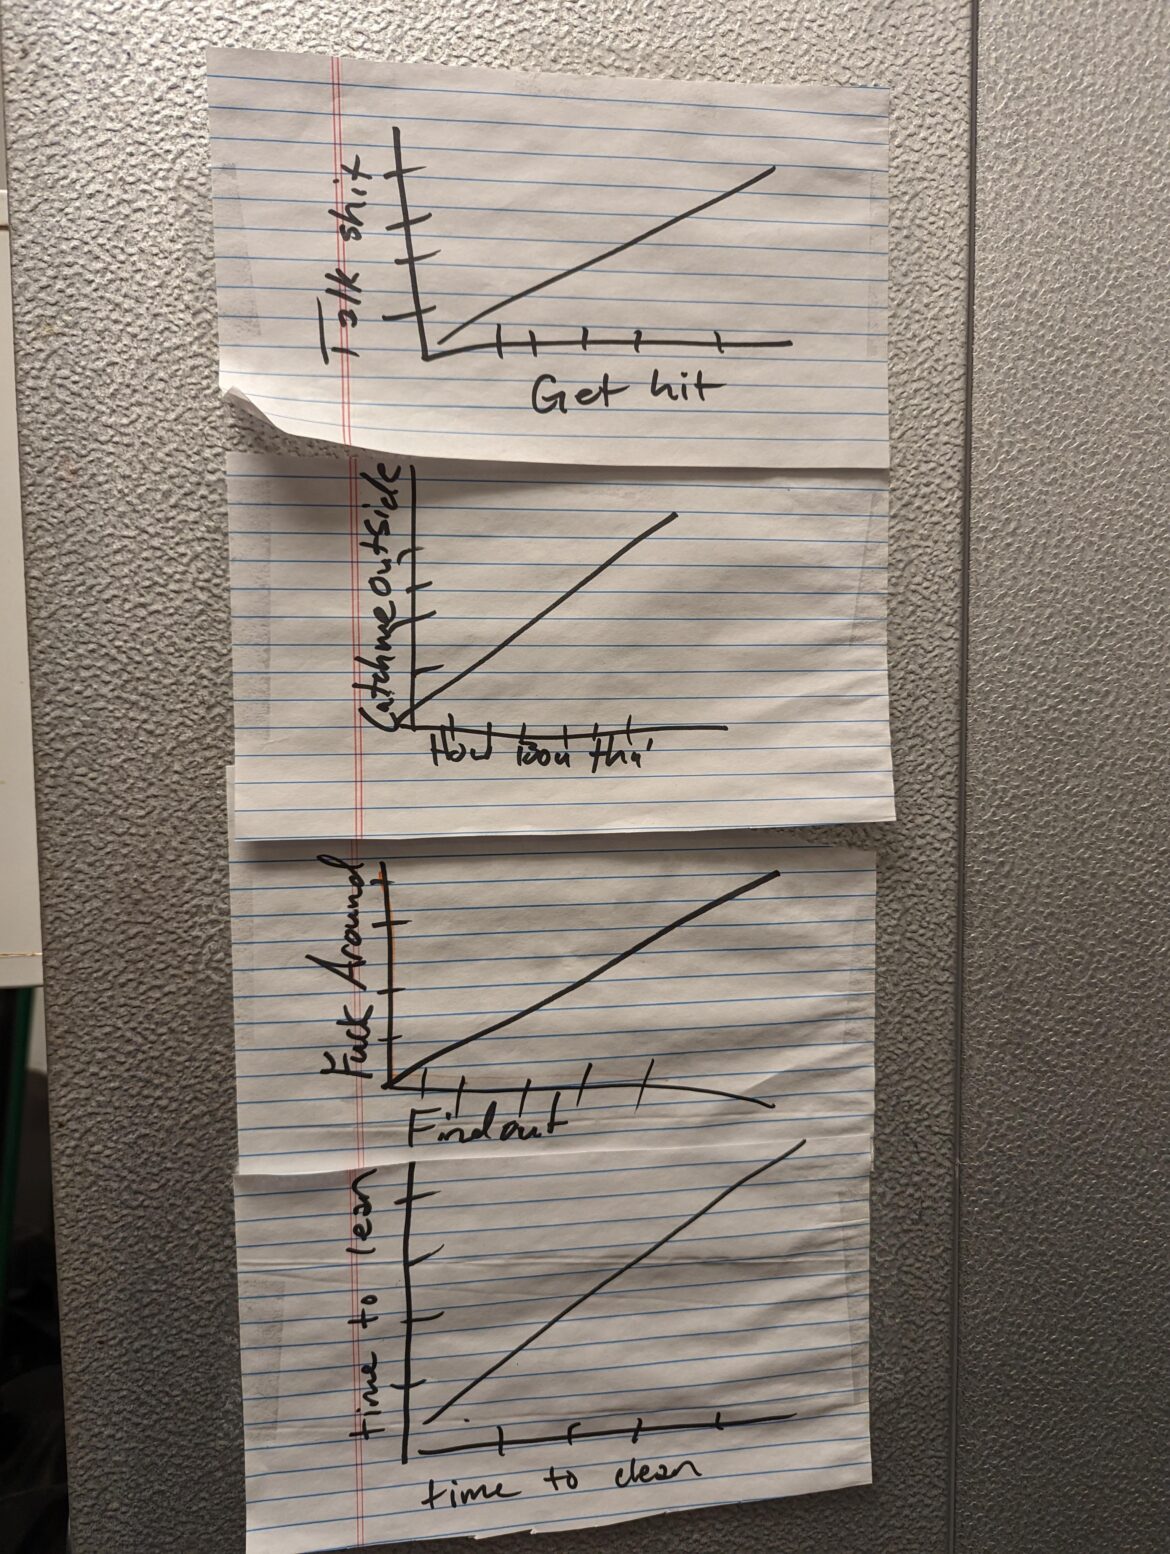 Talk shit
Get hit
Catch me outside
How bou tha'
Fuck Around
Find out
time to lean
time to clean